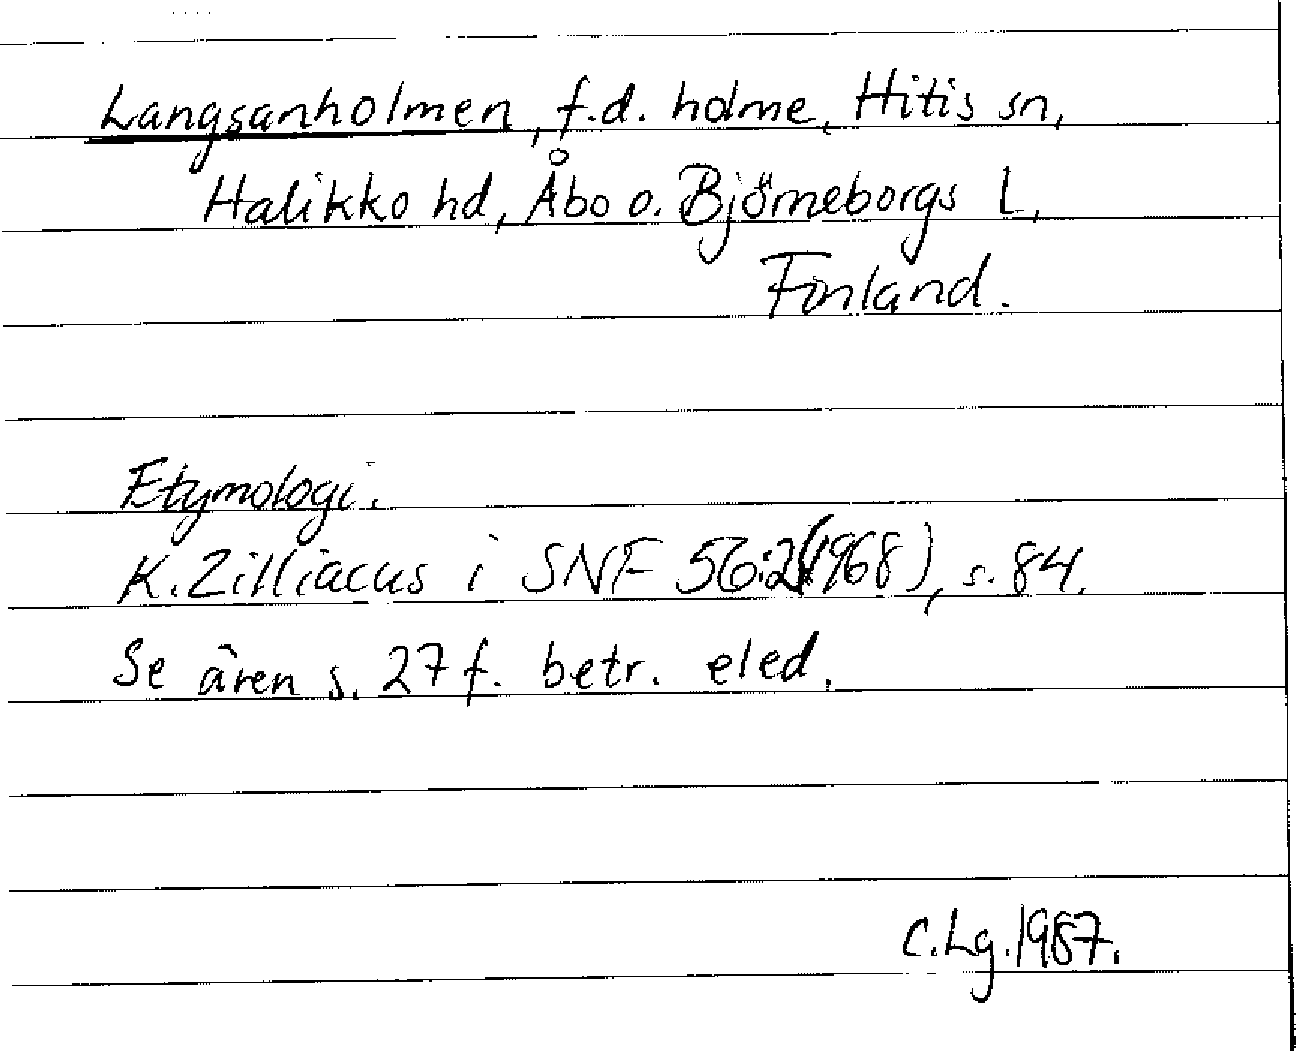 Langsanholmen, f.d. holme, Hitis sn,
Halikko hd, Åbo o. Björneborgs L,
Finland.
Etymologi.
K. Zilliacus i SNF 56:2 (1968), s. 84.
Se även s. 27 f. betr. eled.
C.Lg. 1987.